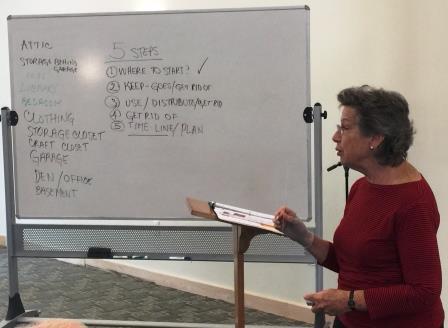 ATTIC
STORAGE BEHIND
GARAGE
LIBRARY
BEDROOM
CLOTHING
STORAGE CLOSET
CRAFT CLOSET
GARAGE
DEN/OFFICE
BASEMENT
5 STEPS
① WHERE TO START? ✓
② KEEP-GOES/GET RID OF
③ USE/DISTRIBUTE/GET RID
④ GET RID OF
⑤ TIME LINE/PLAN